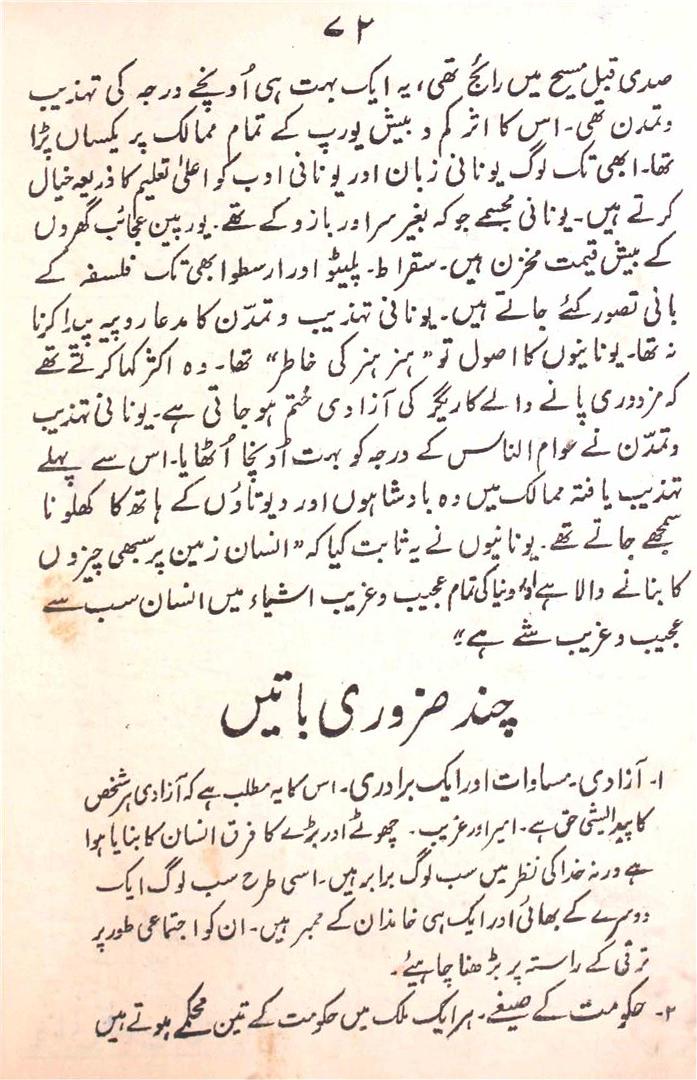 ۷۲
صدی قبل مسیح میں رائج تھی، یہ ایک بہت ہی اُونچے درجہ کی تہذیب
وتمدن تھی۔ اس کا اثر کم و بیش یورپ کے تمام ممالک پر یکساں پڑا
تھا۔ ابھی تک لوگ یونانی زبان اور یونانی ادب کو اعلیٰ تعلیم کا ذریعہ خیال
کرتے ہیں۔ یونانی مجسمے جو کہ بغیر سر اور بازو کے تھے۔ یورپین عجائب گھروں
کے بیش قیمت مخزن ہیں۔ سقراط۔ پلیٹو اور ارسطو ابھی تک فلسفہ کے
بانی تصور کئے جاتے ہیں۔ یونانی تہذیب وتمدّن کا مدعا روپیہ پیدا کرنا
نہ تھا۔ یونانیوں کا اصول تو ”ہنر ہنر کی خاطر“ تھا۔ وہ اکثر کہا کرتے تھے
کہ مزدوری پانے والے کاریگر کی آزادی ختم ہو جاتی ہے۔ یونانی تہذیب
وتمدّن نے عوام الناس کے درجہ کو بہت اُونچا اُٹھایا۔ اس سے پہلے
تہذیب یافتہ ممالک میں وہ بادشاہوں اور دیوتاؤں کے ہاتھ کا کھلونا
سمجھے جاتے تھے۔ یونانیوں نے یہ ثابت کیا کہ ”انسان زمین پر سبھی چیزوں
کا بنانے والا ہے اور دنیا کی تمام عجیب و غریب اشیاء میں انسان سب سے
عجیب و غریب شے ہے“
چند ضروری باتیں
۱۔ آزادی۔ مساوات اور ایک برادری۔ اس کا یہ مطلب ہے کہ آزادی ہر شخص
کا پیدائشی حق ہے۔ امیر اور غریب۔ چھوٹے اور بڑے کا فرق انسان کا بنایا ہوا
ہے ورنہ خدا کی نظر میں سب لوگ برابر ہیں۔ اسی طرح سب لوگ ایک
دوسرے کے بھائی اور ایک ہی خاندان کے ممبر ہیں۔ ان کو اجتماعی طور پر
ترقی کے راستہ پر بڑھنا چاہیئے۔
۲۔ حکومت کے صیغے۔ ہر ایک ملک میں حکومت کے تین محکمے ہوتے ہیں